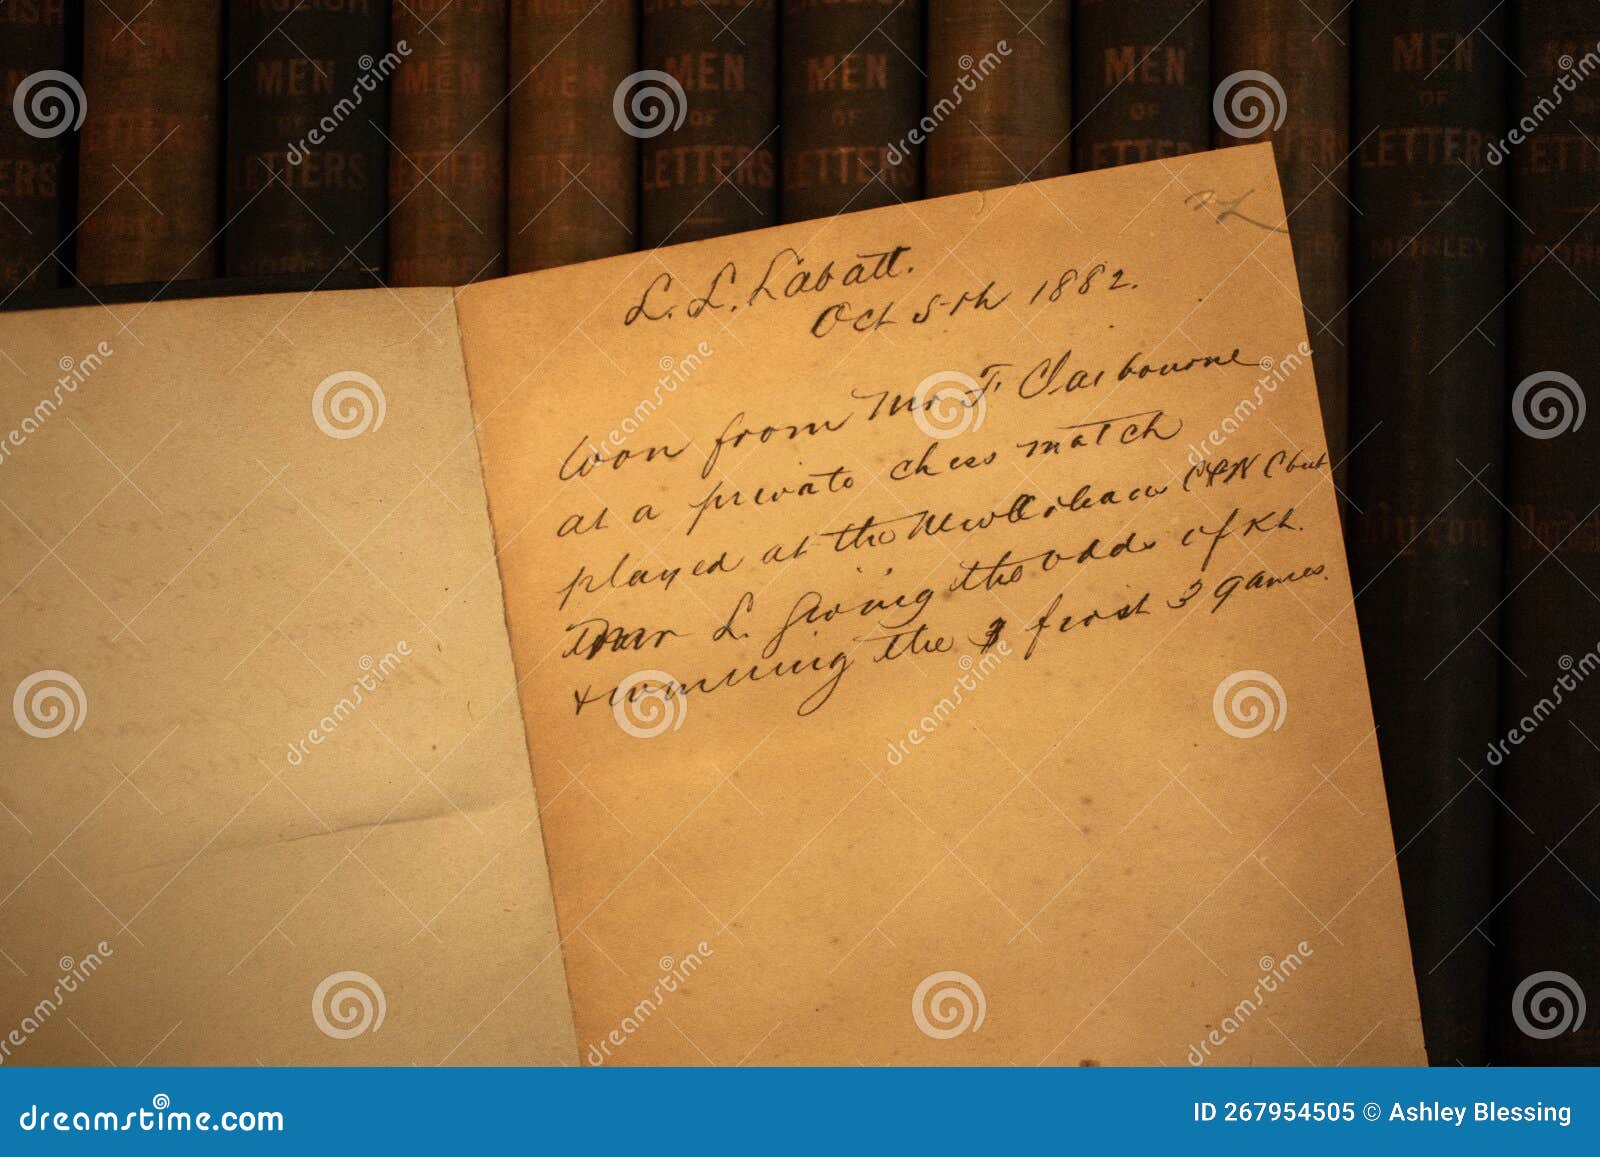 ENGLISH ENGLISH ENGLISH ENGLISH ENGLISH
MEN MEN MEN MEN MEN MEN MEN MEN
OF OF OF OF OF
LETTERS LETTERS LETTERS LETTERS LETTERS LETTERS LETTERS LETTERS
MORLEY MORLEY
Byron
L. L. Labatt.
Oct 5th 1882.
Won from Mr F Claibourne
at a private chess match
played at the New Orleans Club
Mr L. giving the odds of Kt.
& winning the first 3 games.
dreamstime
dreamstime.com
ID 267954505 © Ashley Blessing